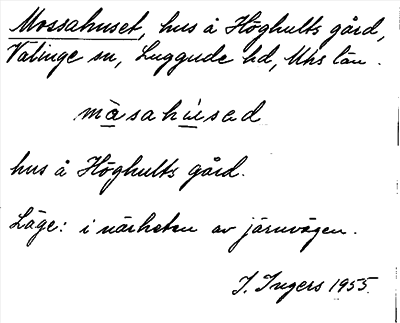 Mossahuset, hus å Höghults gård,
Välinge sn, Luggude hd, Mhs län.
mòsahùsad
hus å Höghults gård.
Läge: i närheten av järnvägen.
I. Ingers 1955.